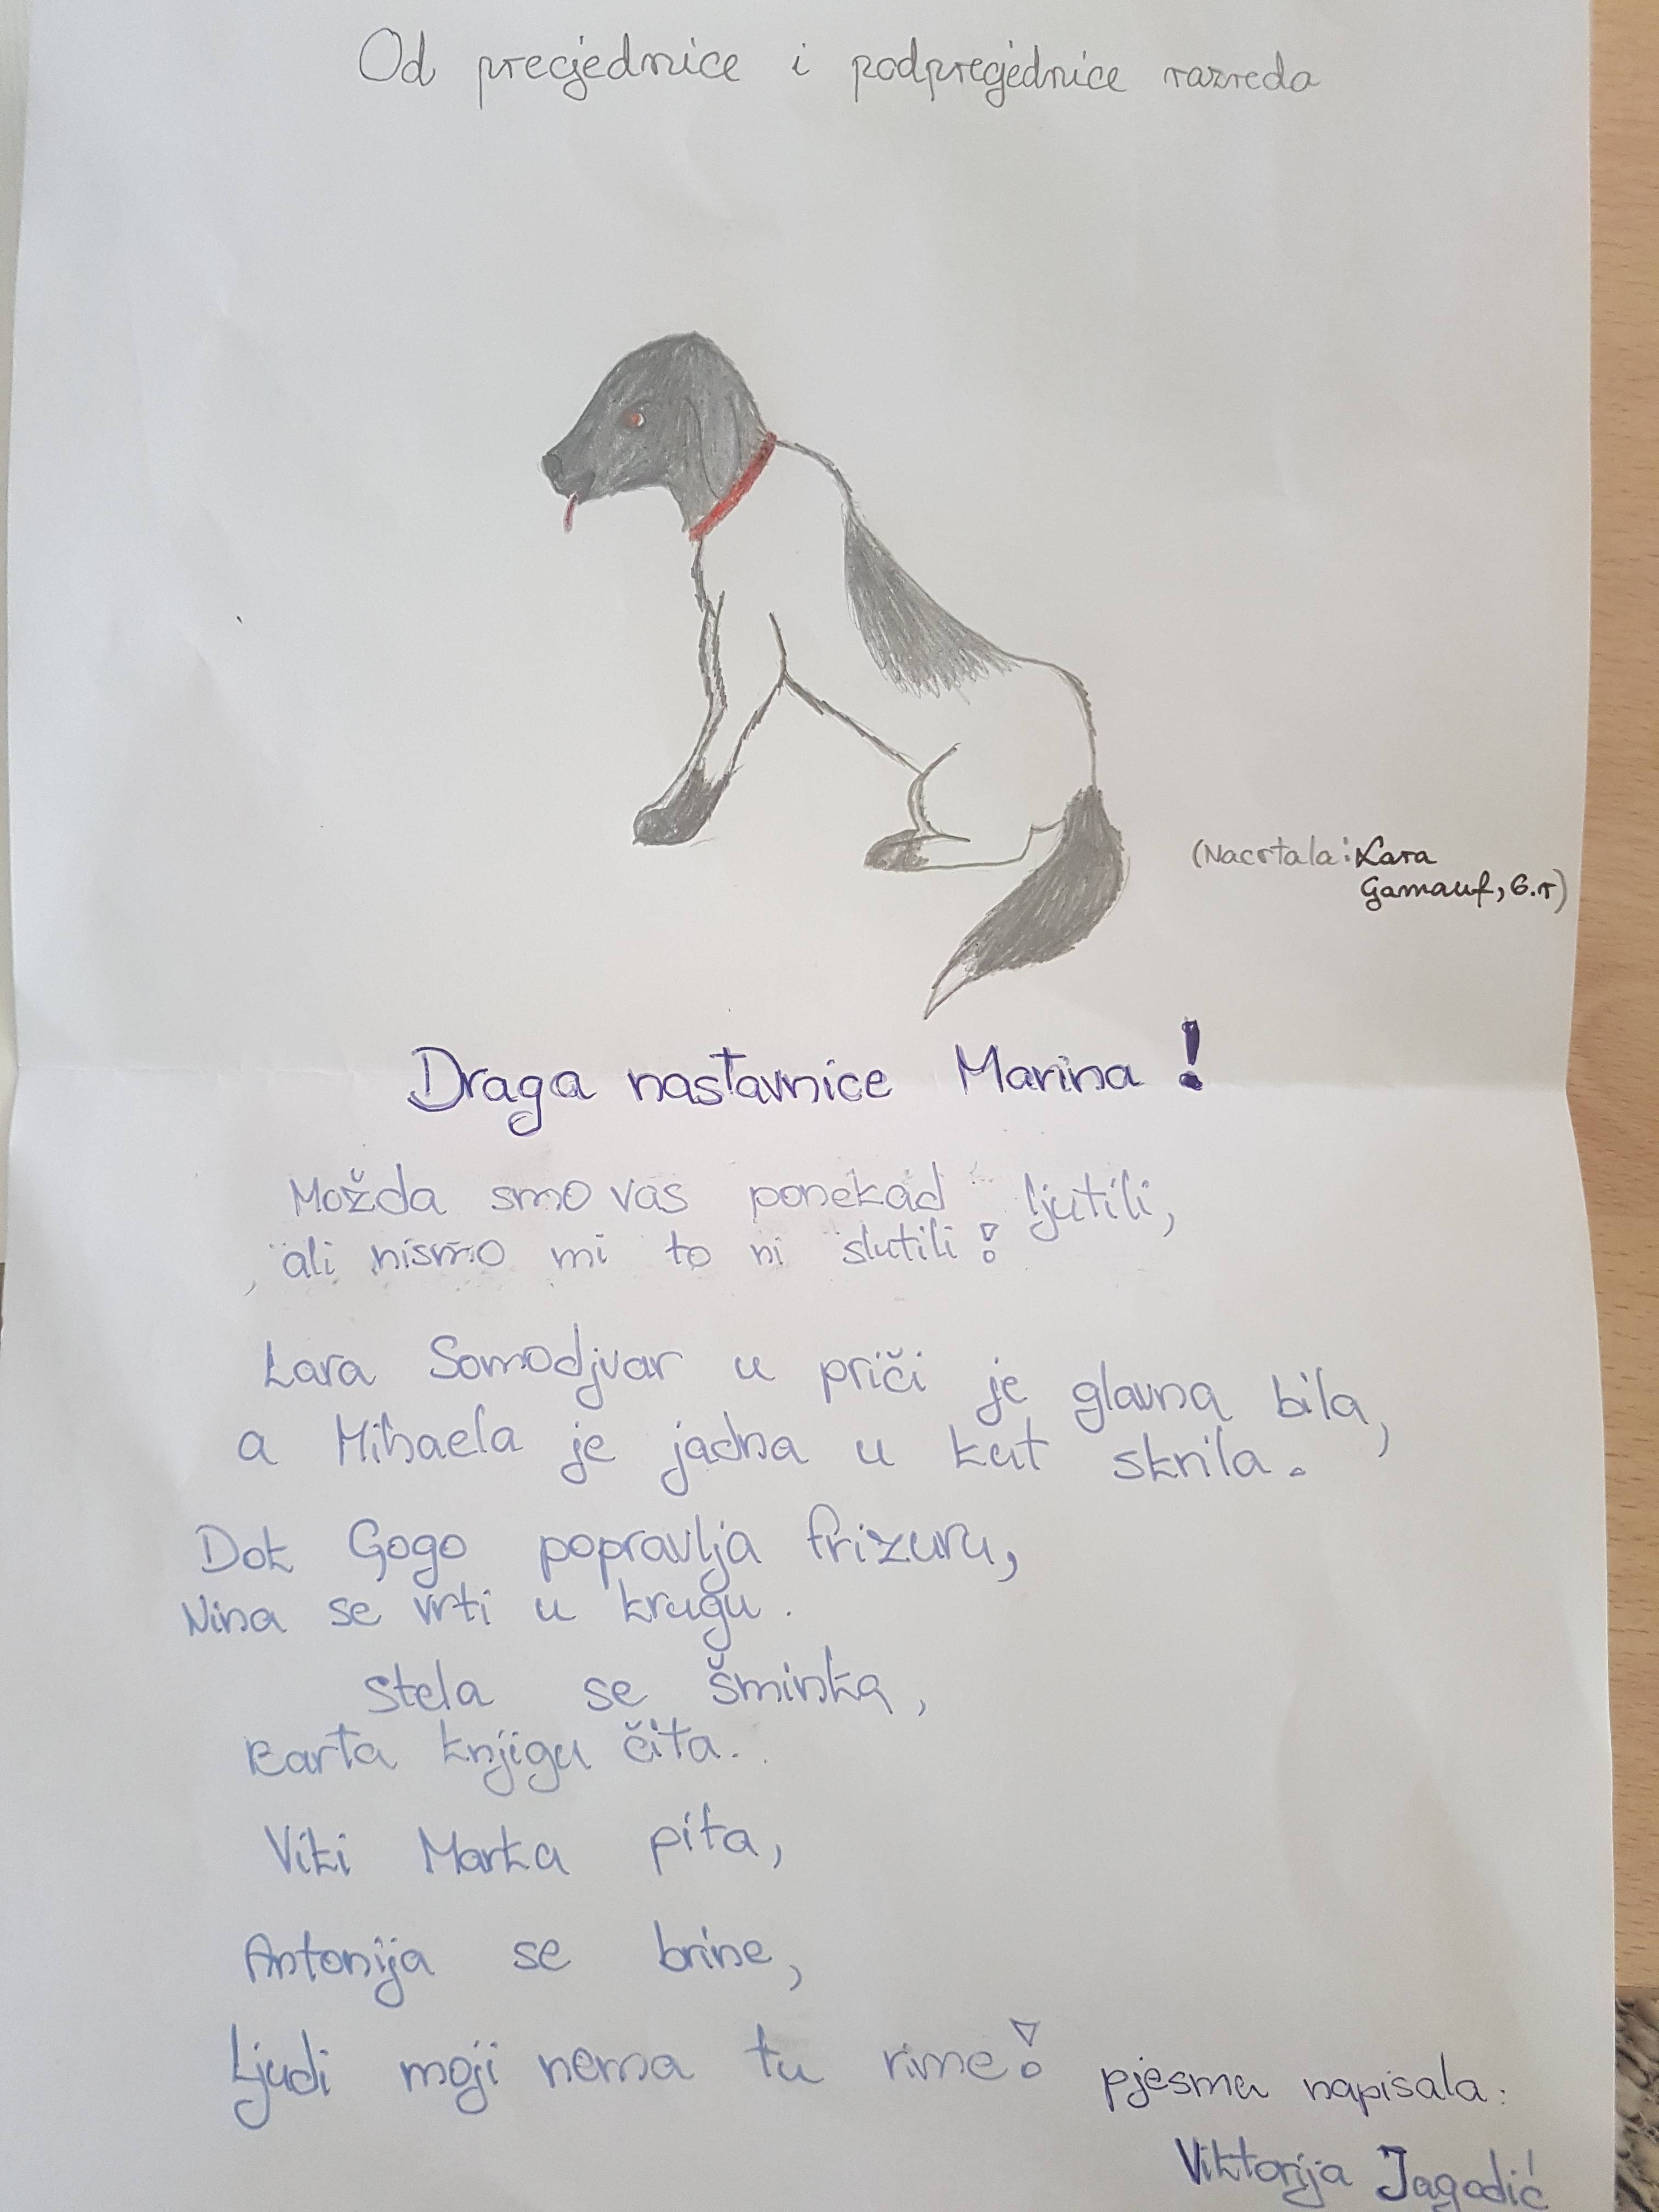 Od precjednice i podprecjednice razreda
(Nacrtala: Lara
Gamauf, 6.r)
Draga nastavnice Marina!
Možda smo vas ponekad ljutili,
ali nismo mi to ni slutili!
Lara Somodjvar u priči je glavna bila,
a Mihaela je jadna u kut skrila.
Dok Gogo popravlja frizuru,
Nina se vrti u krugu.
Stela se šminka,
Barta knjigu čita.
Viki Marka pita,
Antonija se brine,
Ljudi moji nema tu rime!
pjesmu napisala:
Viktorija Jagodić